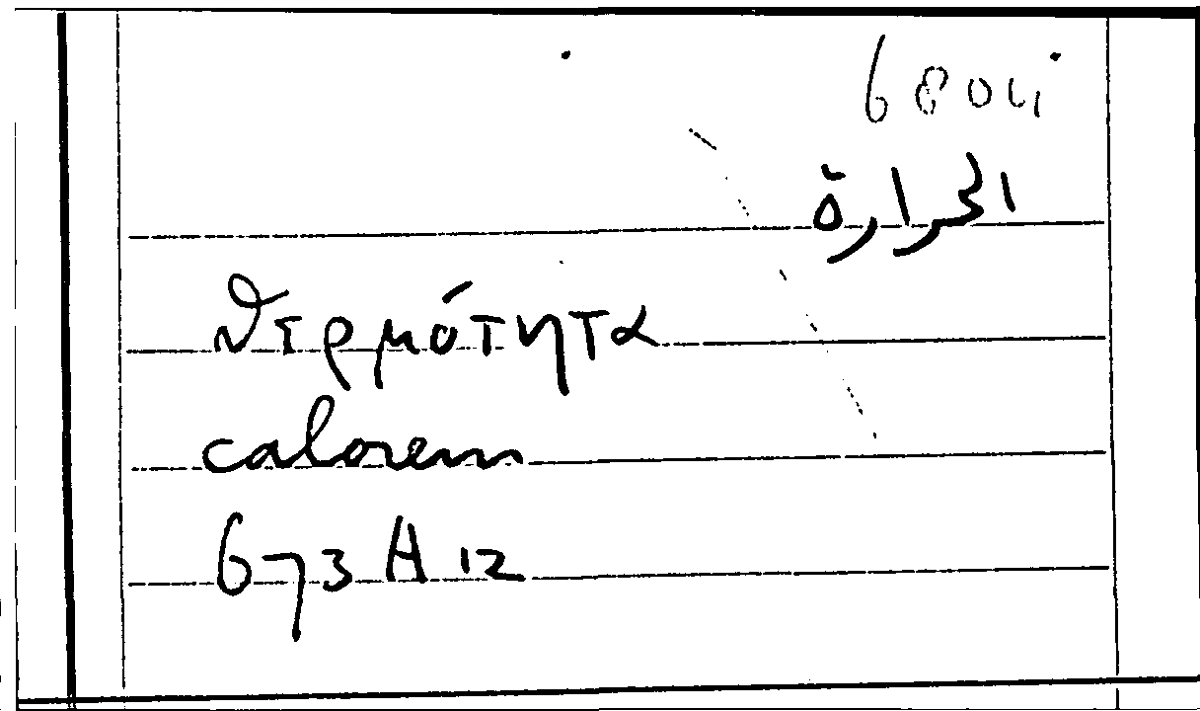 6804
الحرارة
θερμότητα
calorem
673 A 12